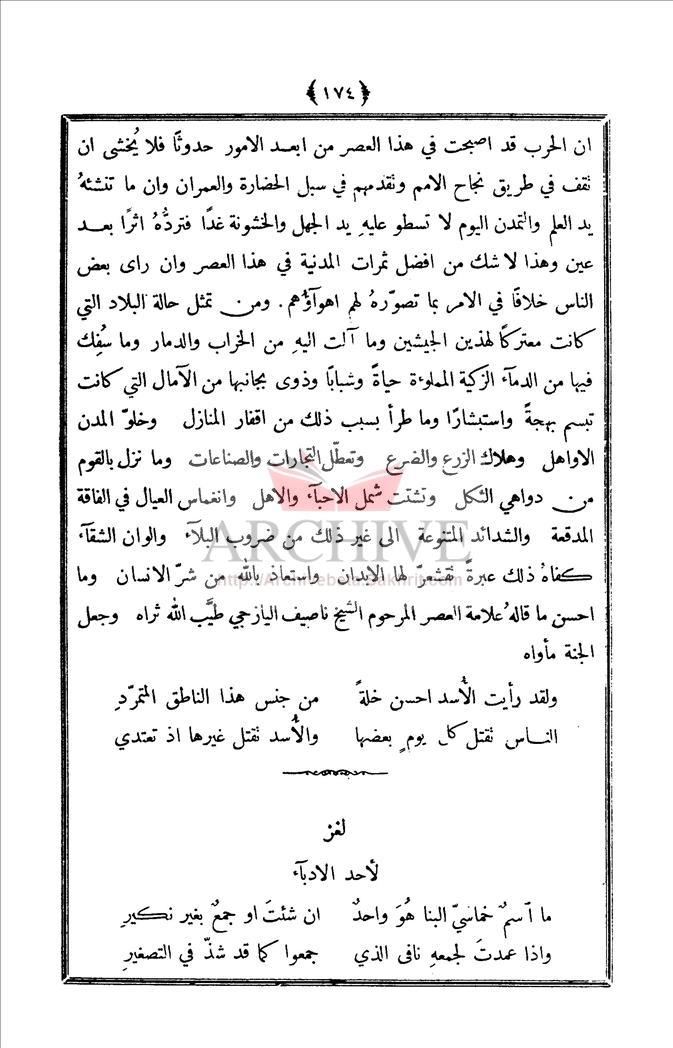 ﴿١٧٤﴾
ان الحرب قد اصبحت في هذا العصر من ابعد الامور حدوثًا فلا يُخشى ان
نقف في طريق نجاح الامم ونقدمهم في سبل الحضارة والعمران وان ما تنشئهُ
يد العلم والتمدن اليوم لا تسطو عليهِ يد الجهل والخشونة غدًا فتردُّهُ اثرًا بعد
عين وهذا لا شك من افضل ثمرات المدنية في هذا العصر وان راى بعض
الناس خلافًا في الامر بما تصوّرهُ لهم اهوآؤهم . ومن تمثل حالة البلاد التي
كانت معتركًا لهذين الجيشين وما آلت اليهِ من الخراب والدمار وما سُفِك
فيها من الدمآء الزكية المملوءة حياةً وشبابًا وذوى بجانبها من الآمال التي كانت
تبسم بهجةً واستبشارًا وما طرأ بسبب ذلك من اقفار المنازل وخلوّ المدن
الاواهل وهلاك الزرع والضرع وتعطّل التجارات والصناعات وما نزل بالقوم
من دواهي الثكل وتشتت شمل الاحبآء والاهل وانغماس العيال في الفاقة
المدقعة والشدائد المتنوعة الى غير ذلك من ضروب البلآء والوان الشقآء
كفاهُ ذلك عبرةً نقشعرّ لها الابدان واستعاذ بالله من شرّ الانسان وما
احسن ما قالهُ علامة العصر المرحوم الشيخ ناصيف اليازجي طيَّب الله ثراه وجعل
الجنة مأواه
ولقد رأيت الأُسد احسن خلةً من جنس هذا الناطق المتمرّدِ
الناس نقتل كل يومٍ بعضها والأُسد نقتل غيرها اذ تعتدي
لغز
لأحد الادبآء
ما آسمٌ خماسيّ البنا هُوَ واحدٌ ان شئتَ او جمعٌ بغير نكيرِ
واذا عمدتَ لجمعهِ نافى الذي جمعوا كما قد شذّ في التصغيرِ
ARCHIVE